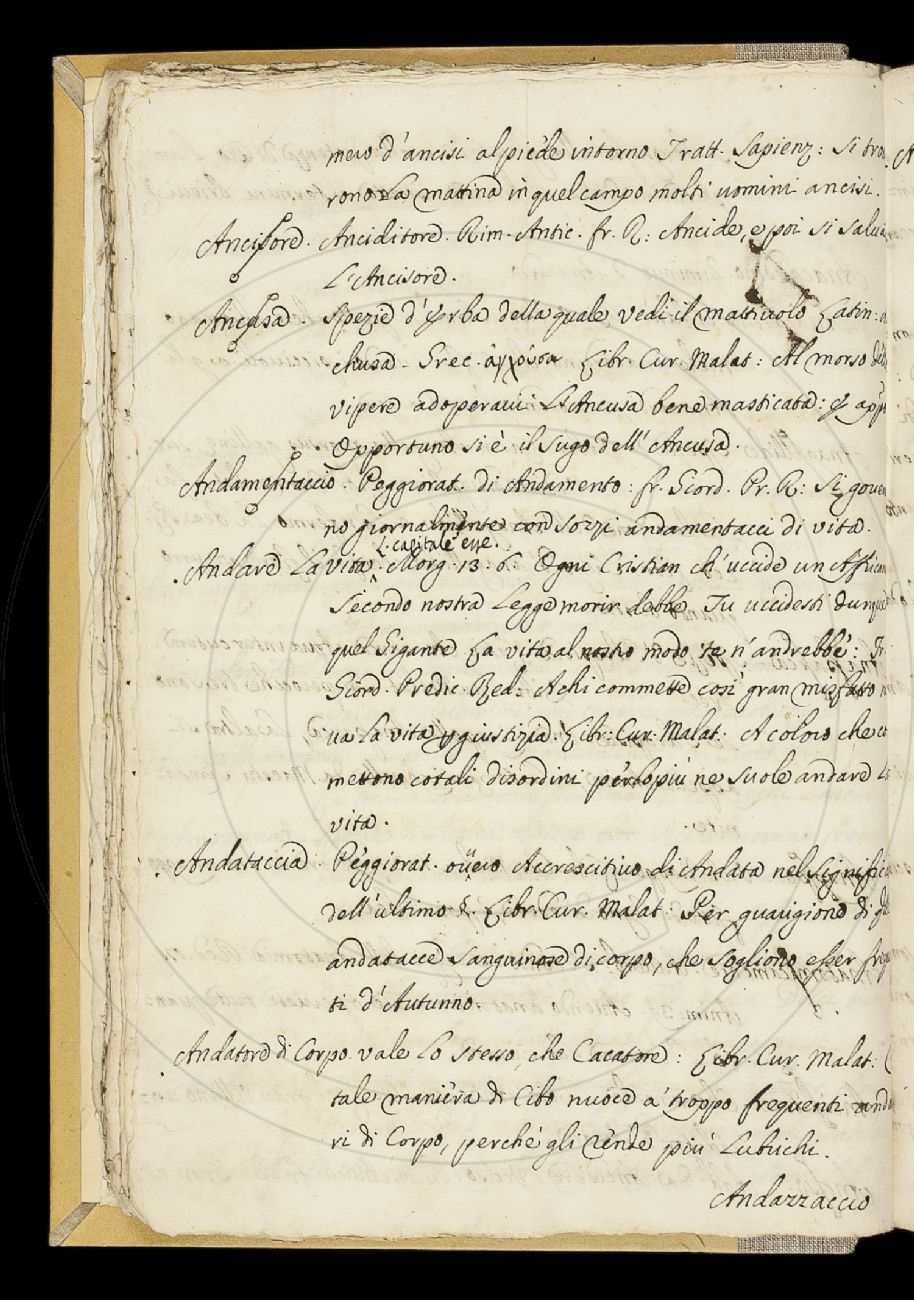 mero d'ancisi al piede intorno Tratt. Sapienz: Si trova
rono la mattina in quel campo molti uomini ancisi.
Ancisore. Anciditore. Rim. Antic. fr. R: Ancide, e poi si salva
L'Ancisore.
Ancusa. Spezie d'Erba della quale, vedi il mattiuolo Latin:
chusa. Grec. ἀγχόυσα Libr. Cur. Malat: Al morso delle
vipere adoperavi: L'Ancusa bene masticata: &
Opportuno si è il Sugo dell'Ancusa.
Andamentaccio. Peggiorat. di Andamento: fr. Giord. Pr. R: Si gover
no giornalmente con sozzi andamentacci di vita.
L. capitale
Andare La vita. Morg. 13. 6: Ogni Cristian ch'uccide un Affrican
Secondo nostra Legge morir debbe Tu uccidesti dunque
quel Gigante La vita al nostro modo te n'andrebbe: Fr.
Giord. Predic. Red: A chi commette così gran misfatto
va La vita giustizia. Libr: Cur: Malat. A coloro che co
mettono cotali disordini perlopiù ne suole andare La
vita.
Andataccia. Peggiorat. ovvero Accrescitivo di Andata nel Signific
dell'ultimo §. Libr. Cur. Malat: Per guarigione di
andatacce sanguinose di corpo, che sogliono esser freq
ti d'Autunno.
Andatore di Corpo vale Lo stesso, che Cacatore: Libr. Cur. Malat:
tale maniera di Cibo nuoce a' troppo frequenti andato
ri di Corpo, perchè gli rende più Lubrichi.
Andazzaccio